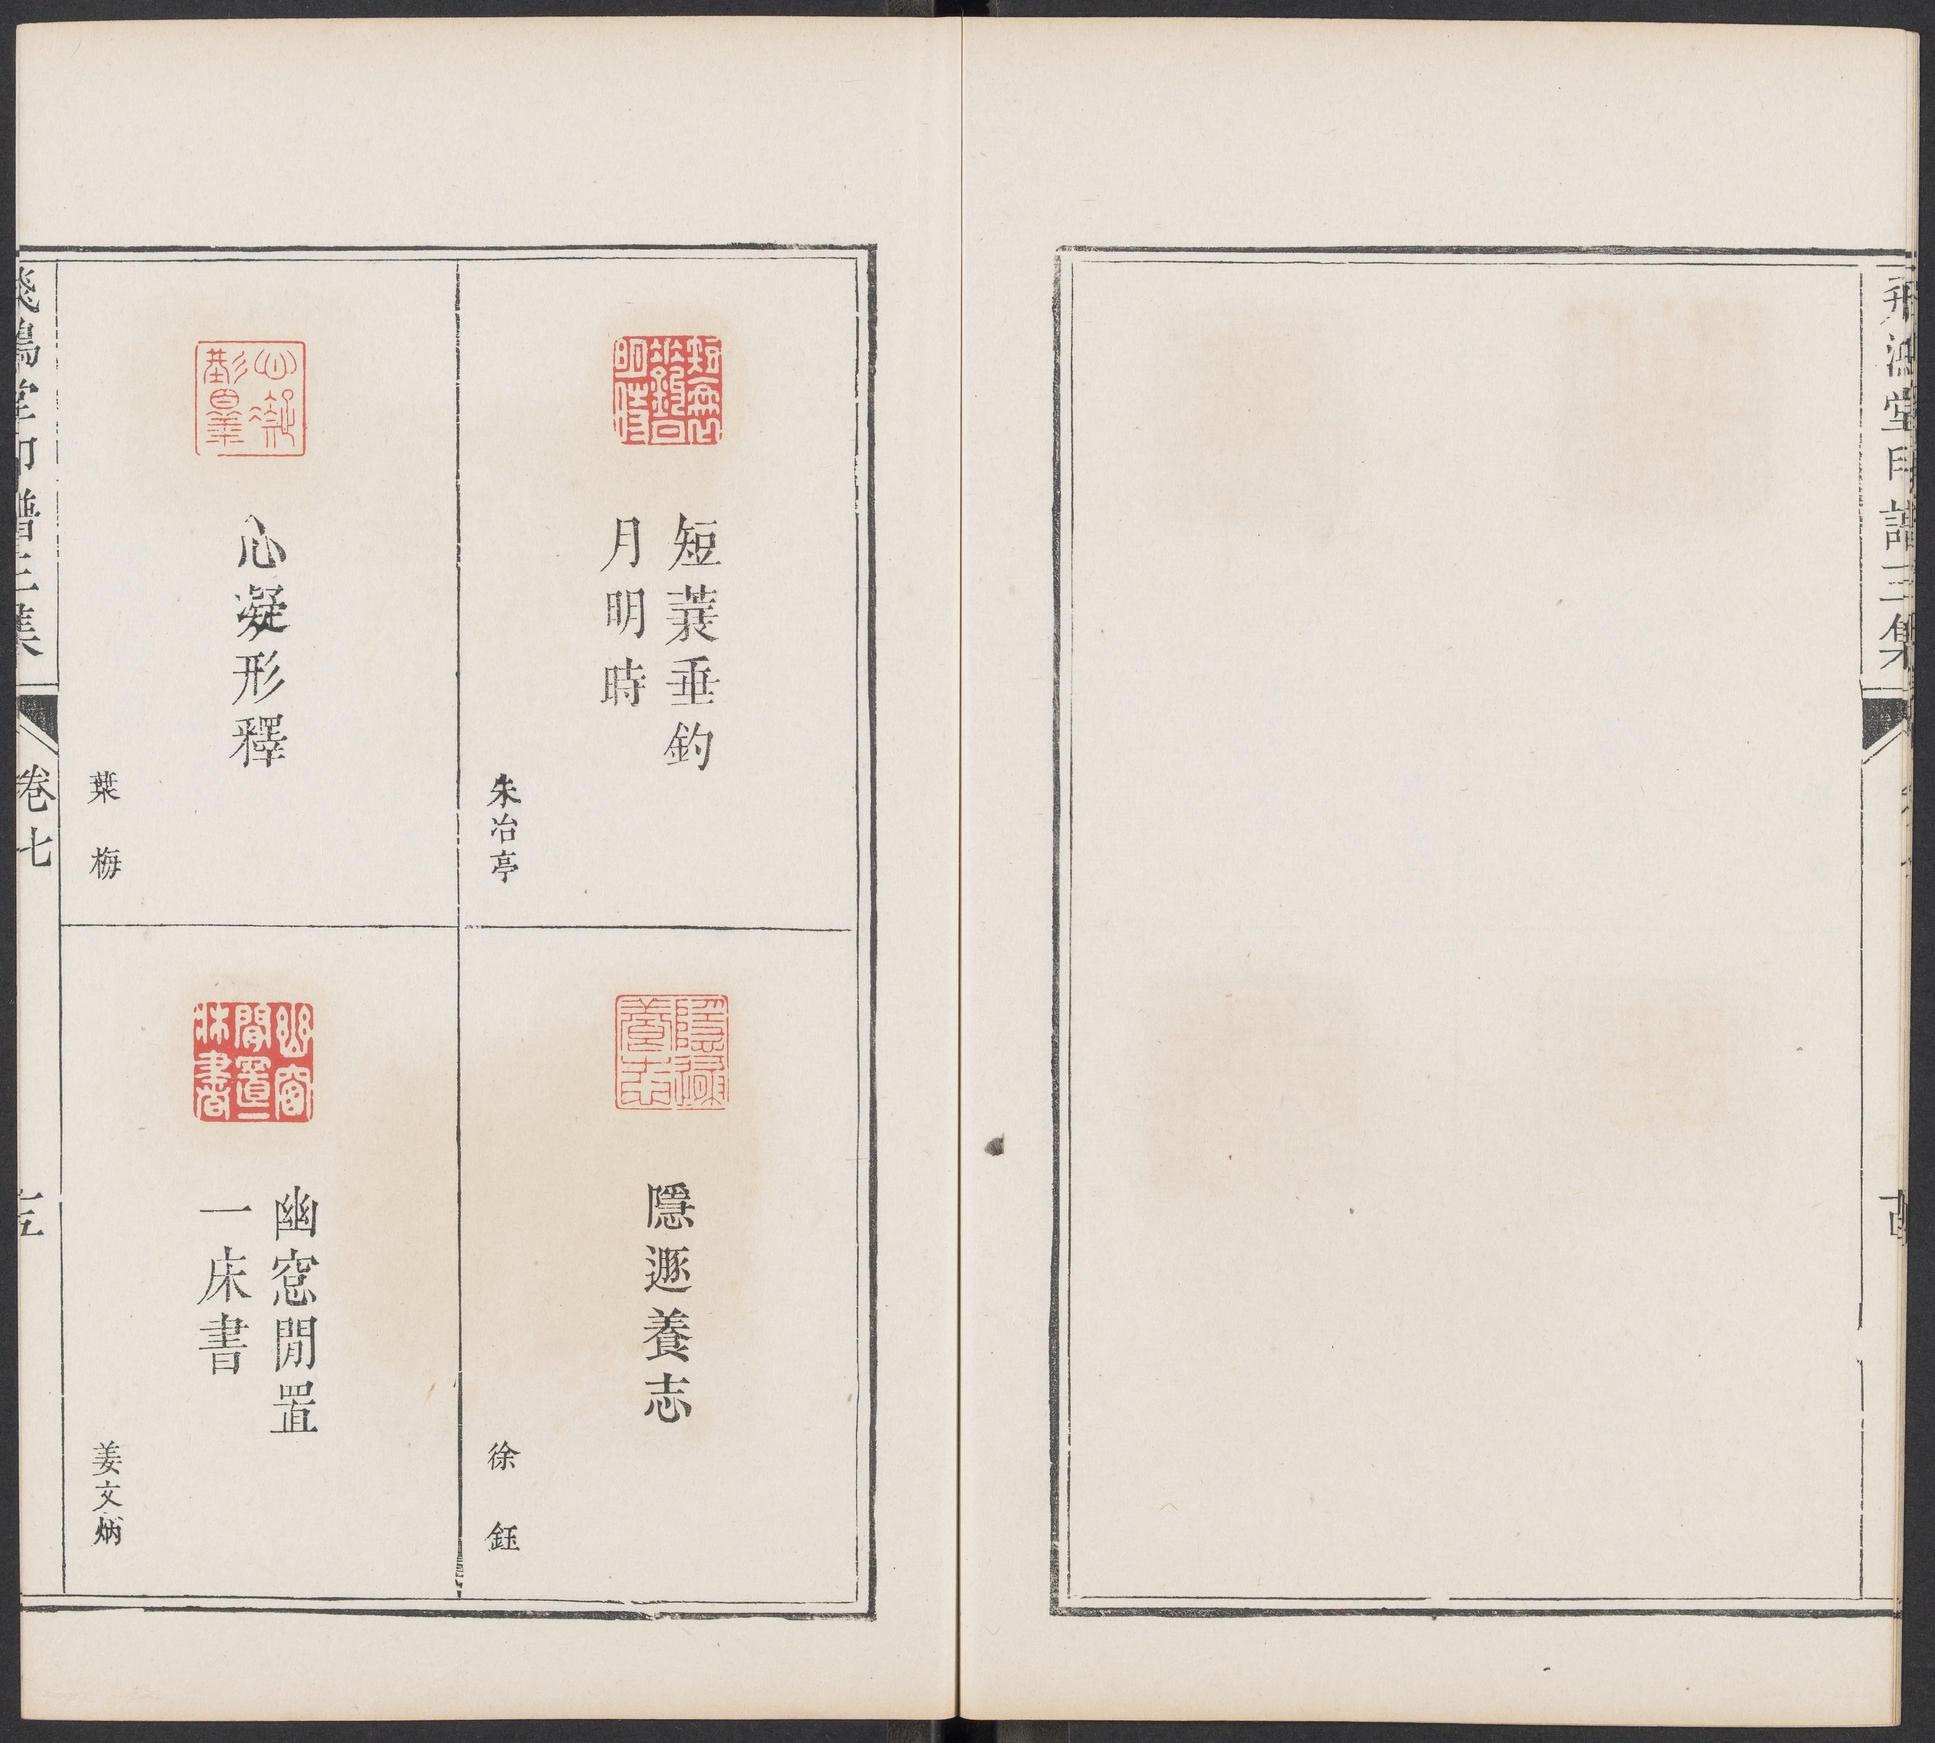 飛鴻堂印譜三集
短蓑垂釣
月明時
朱冶亭
隱遯養志
徐鈺
心凝形釋
葉梅
幽窓閒置
一床書
姜文炳
飛鴻堂印譜三集
卷七